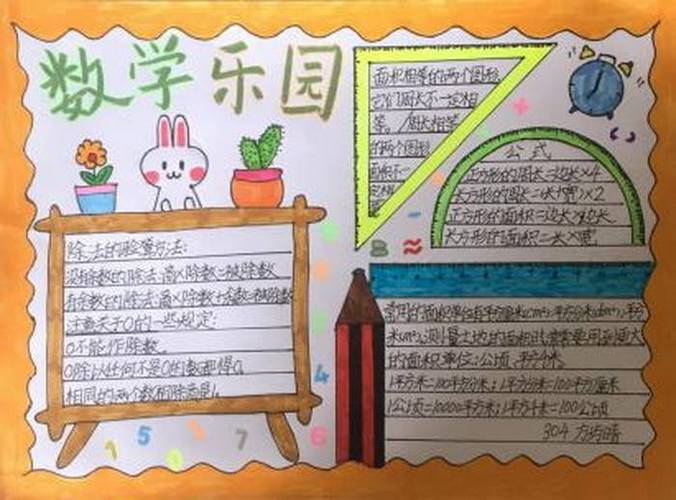 数学乐园
面积相等的两个图形
它们周长不一定相
等。周长相等
的两个图形
面积不一
定相
等
公式
正方形的周长=边长×4
长方形的周长=(长+宽)×2
正方形的面积=边长×边长
长方形的面积=长×宽
除法的验算方法:
没有余数的除法:商×除数=被除数
有余数的除法:商×除数+余数=被除数
注意关于0的一些规定:
0不能作除数。
0除以任何不是0的数都得0。
相同的两个数相除商是1。
常用的面积单位有平方厘米(cm²)、平方分米(dm²)、平方
米(m²)。测量土地的面积时,常常要用到更大
的面积单位:公顷、平方千米。
1平方米=100平方分米;1平方分米=100平方厘米
1公顷=10000平方米;1平方千米=100公顷
304
3 ≈
4
1 5 0 7 6